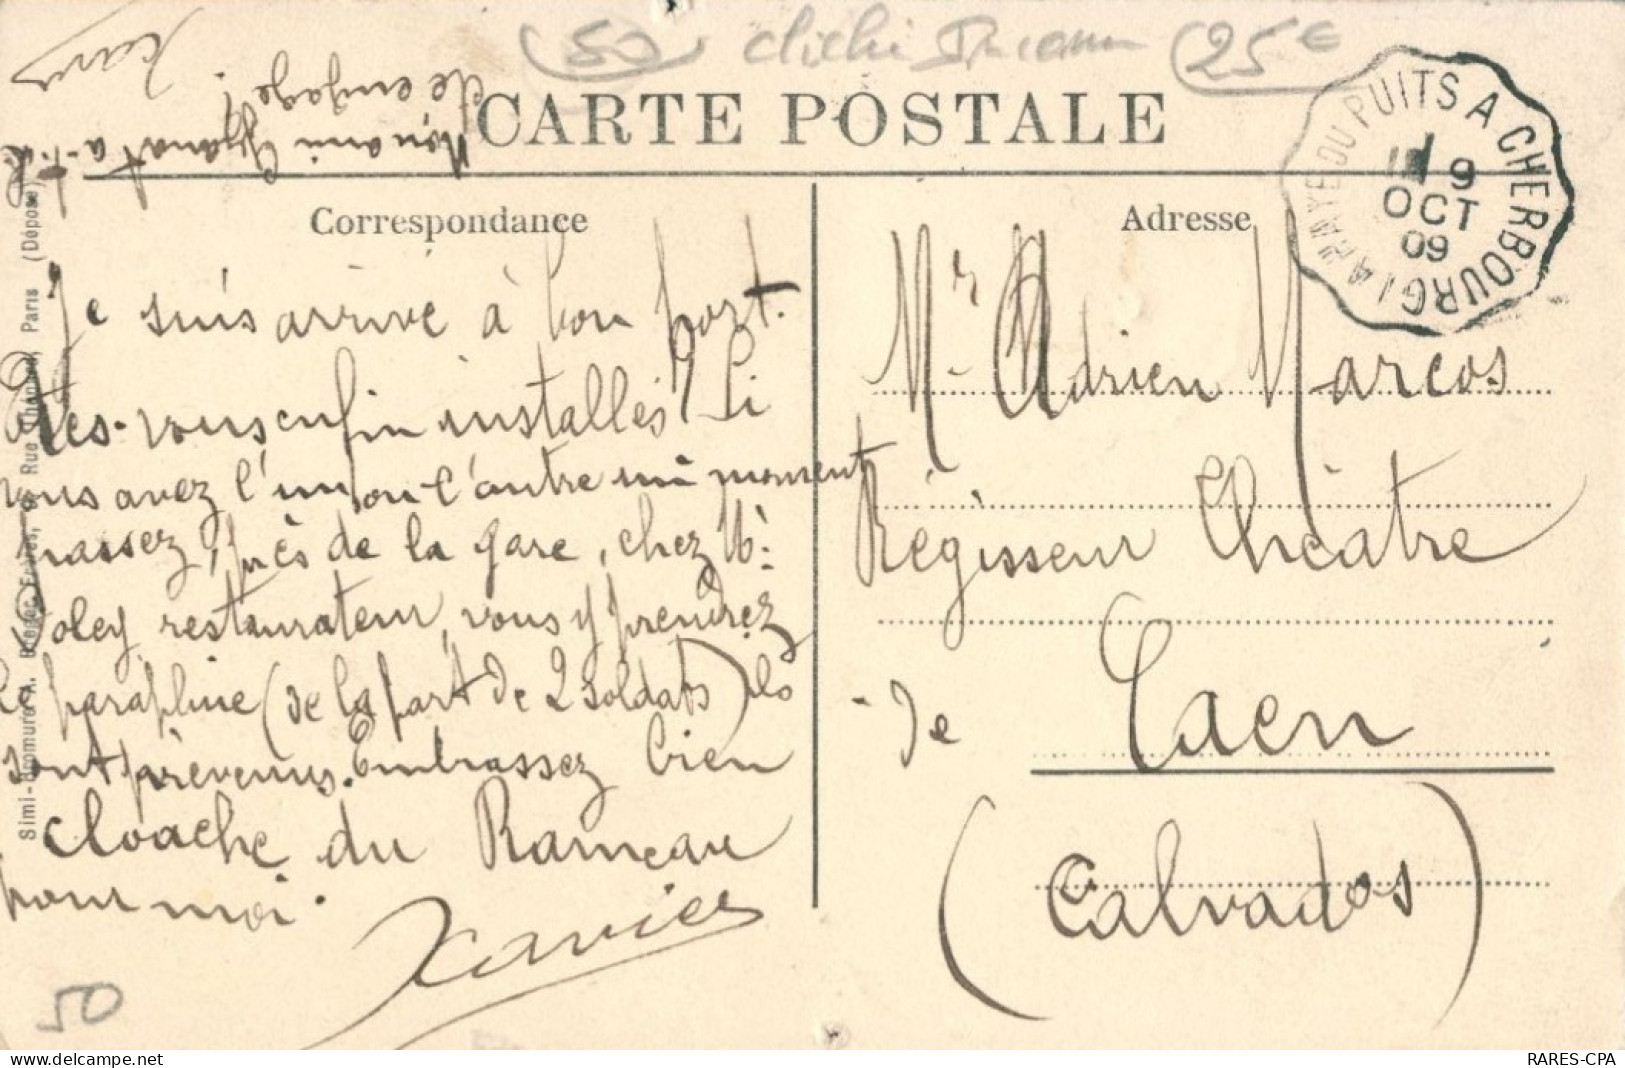 50 cliché 25€
CARTE POSTALE
Mon ami a-t-il
été engagé?
Xavier
LA HAYE DU PUITS A CHERBOURG
9
OCT
09
Correspondance
Adresse
Je suis arrivé à bon port.
Etes-vous enfin installés? Si
vous avez l'un ou l'autre un moment
passez, près de la gare, chez Mr
Poley restaurateur, vous y prendrez
le paraphine (de la part de 2 soldats) ils
sont prévenus. Embrassez bien
cloache du Rameau
pour moi.
Xavier
Mr Adrien Marcos
Régisseur Théâtre
de Caen
(Calvados)
Simi-Bromure A. Breger Frères, 9, Rue Thénard, Paris (Déposé)
50
www.delcampe.net
RARES-CPA